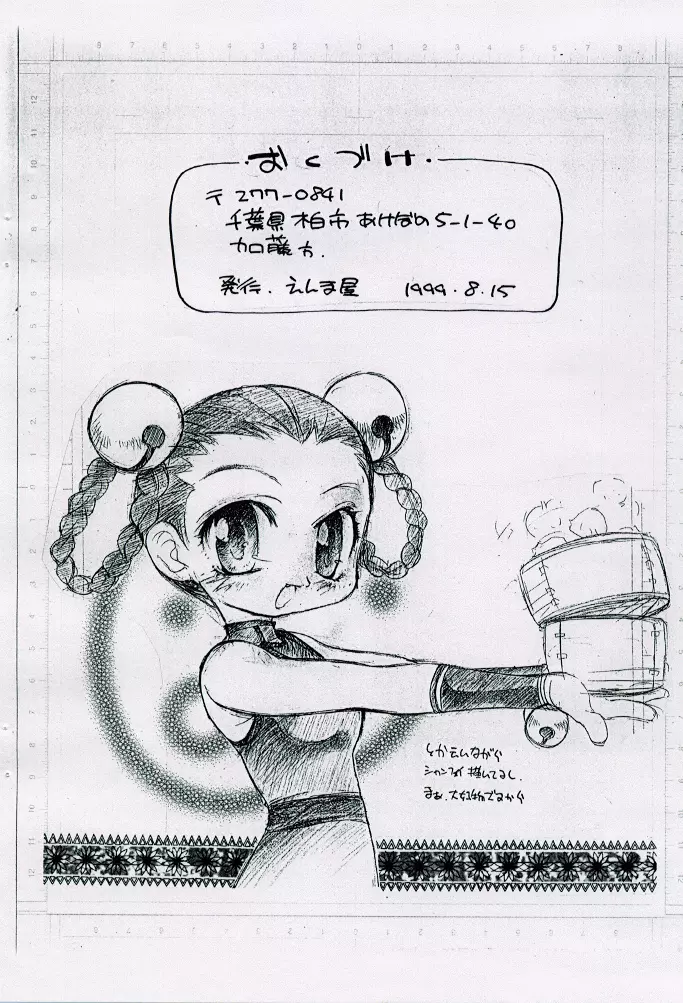 ・おくづけ・
〒277-0841
千葉県柏市あけぼの5-1-40
加藤方.
発行.えんま屋 1999.8.15
とか云いながら
シャンフェイ描いてるし.
まぁ.大好物ですから